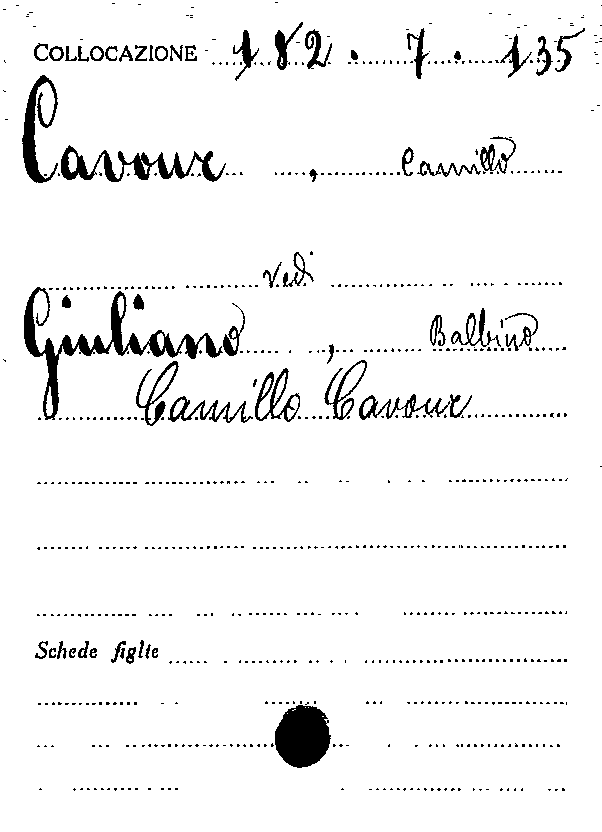 COLLOCAZIONE 182. 7. 135
Cavour, Camillo
vedi
Giuliano, Balbino
Camillo Cavour
Schede figlie